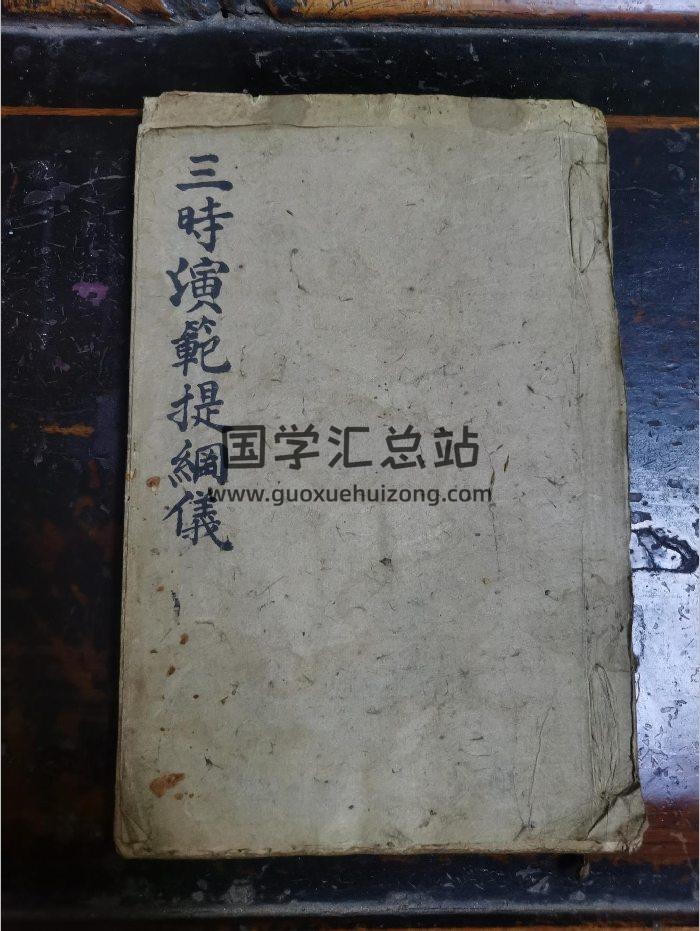 三時演範提綱儀
国学汇总站
www.guoxuehuizong.com